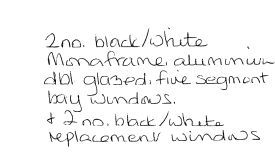 2no. black/white
Monaframe, aluminium
dbl glazed, five segment
bay windows.
& 2 no. black/white
replacement windows